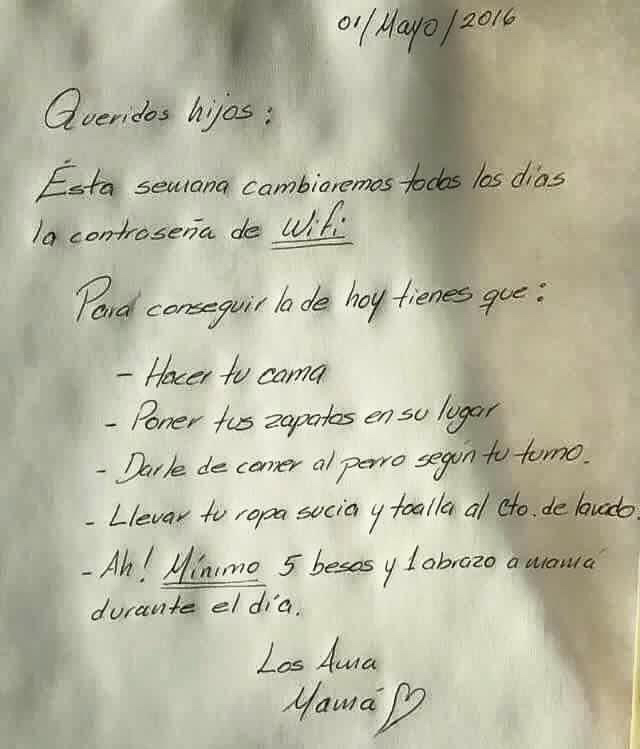 01/Mayo/2016
Queridos hijos:
Ésta semana cambiaremos todos los días
la contraseña de Wifi
Para conseguir la de hoy tienes que:
- Hacer tu cama
- Poner tus zapatos en su lugar
- Darle de comer al perro según tu turno.
- Llevar tu ropa sucia y toalla al cto. de lavado.
- Ah! Mínimo 5 besos y 1 abrazo a mamá
durante el día.
Los Ama
Mamá